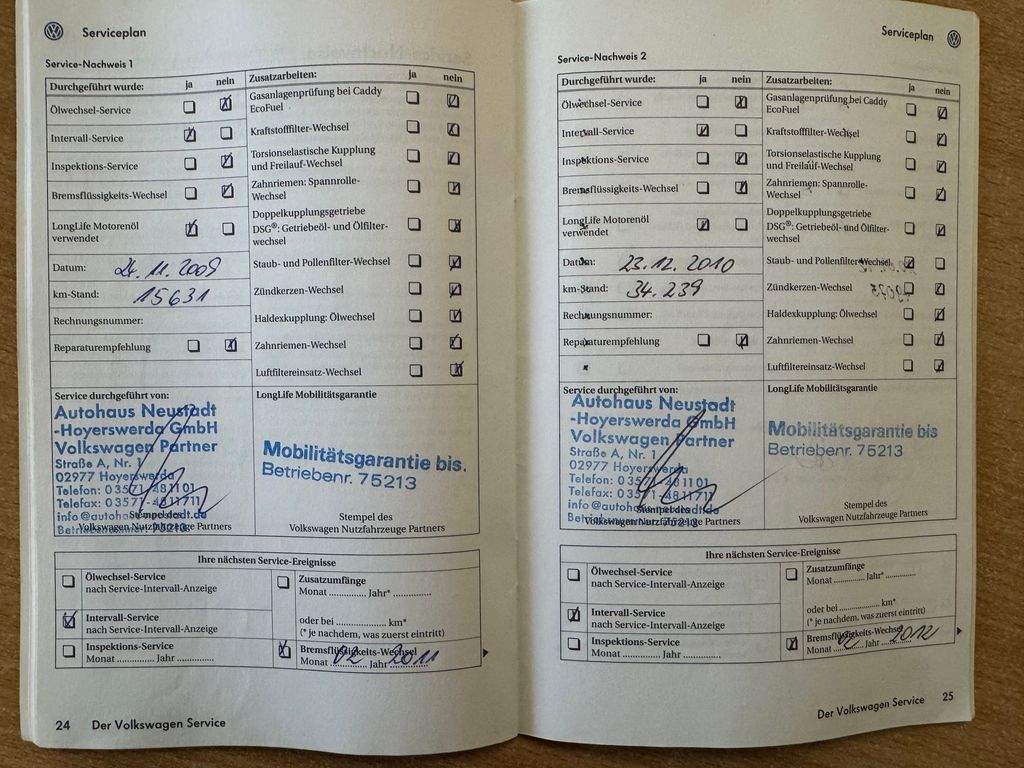 Serviceplan
Service-Nachweis 1
Durchgeführt wurde: ja nein
Ölwechsel-Service
Intervall-Service
Inspektions-Service
Bremsflüssigkeits-Wechsel
LongLife Motorenöl
verwendet
Datum: 24.11.2009
km-Stand: 15631
Rechnungsnummer:
Reparaturempfehlung
Zusatzarbeiten: ja nein
Gasanlagenprüfung bei Caddy
EcoFuel
Kraftstofffilter-Wechsel
Torsionselastische Kupplung
und Freilauf-Wechsel
Zahnriemen: Spannrolle-
Wechsel
Doppelkupplungsgetriebe
DSG®: Getriebeöl- und Ölfilter-
wechsel
Staub- und Pollenfilter-Wechsel
Zündkerzen-Wechsel
Haldexkupplung: Ölwechsel
Zahnriemen-Wechsel
Luftfiltereinsatz-Wechsel
Service durchgeführt von:
Autohaus Neustadt
-Hoyerswerda GmbH
Volkswagen Partner
Straße A, Nr. 1
02977 Hoyerswerda
Telefon: 03571-481101
Telefax: 03571-4811711
info@autohaus-neustadt.de
Betriebsnummer: 75213
Stempel des
Volkswagen Nutzfahrzeuge Partners
LongLife Mobilitätsgarantie
Mobilitätsgarantie bis.
Betriebenr. 75213
Stempel des
Volkswagen Nutzfahrzeuge Partners
Ihre nächsten Service-Ereignisse
Ölwechsel-Service
nach Service-Intervall-Anzeige
Intervall-Service
nach Service-Intervall-Anzeige
Inspektions-Service
Monat ............ Jahr ...............
Zusatzumfänge
Monat ............. Jahr* ...............
oder bei .................... km*
(* je nachdem, was zuerst eintritt)
Bremsflüssigkeits-Wechsel
Monat 02 Jahr 2011
24 Der Volkswagen Service
Serviceplan
Service-Nachweis 2
Durchgeführt wurde: ja nein
Ölwechsel-Service
Intervall-Service
Inspektions-Service
Bremsflüssigkeits-Wechsel
LongLife Motorenöl
verwendet
Datum: 23.12.2010
km-Stand: 34.239
Rechnungsnummer:
Reparaturempfehlung
Zusatzarbeiten: ja nein
Gasanlagenprüfung bei Caddy
EcoFuel
Kraftstofffilter-Wechsel
Torsionselastische Kupplung
und Freilauf-Wechsel
Zahnriemen: Spannrolle-
Wechsel
Doppelkupplungsgetriebe
DSG®: Getriebeöl- und Ölfilter-
wechsel
Staub- und Pollenfilter-Wechsel
Zündkerzen-Wechsel
Haldexkupplung: Ölwechsel
Zahnriemen-Wechsel
Luftfiltereinsatz-Wechsel
Service durchgeführt von:
Autohaus Neustadt
-Hoyerswerda GmbH
Volkswagen Partner
Straße A, Nr. 1
02977 Hoyerswerda
Telefon: 03571-481101
Telefax: 03571-4811711
info@autohaus-neustadt.de
Betriebsnummer: 75213
Stempel des
Volkswagen Nutzfahrzeuge Partners
LongLife Mobilitätsgarantie
Mobilitätsgarantie bis
Betriebenr. 75213
Stempel des
Volkswagen Nutzfahrzeuge Partners
Ihre nächsten Service-Ereignisse
Ölwechsel-Service
nach Service-Intervall-Anzeige
Intervall-Service
nach Service-Intervall-Anzeige
Inspektions-Service
Monat ............ Jahr ...............
Zusatzumfänge
Monat ............ Jahr* ............
oder bei .................... km*
(* je nachdem, was zuerst eintritt)
Bremsflüssigkeits-Wechsel
Monat 02 Jahr 2012
Der Volkswagen Service 25